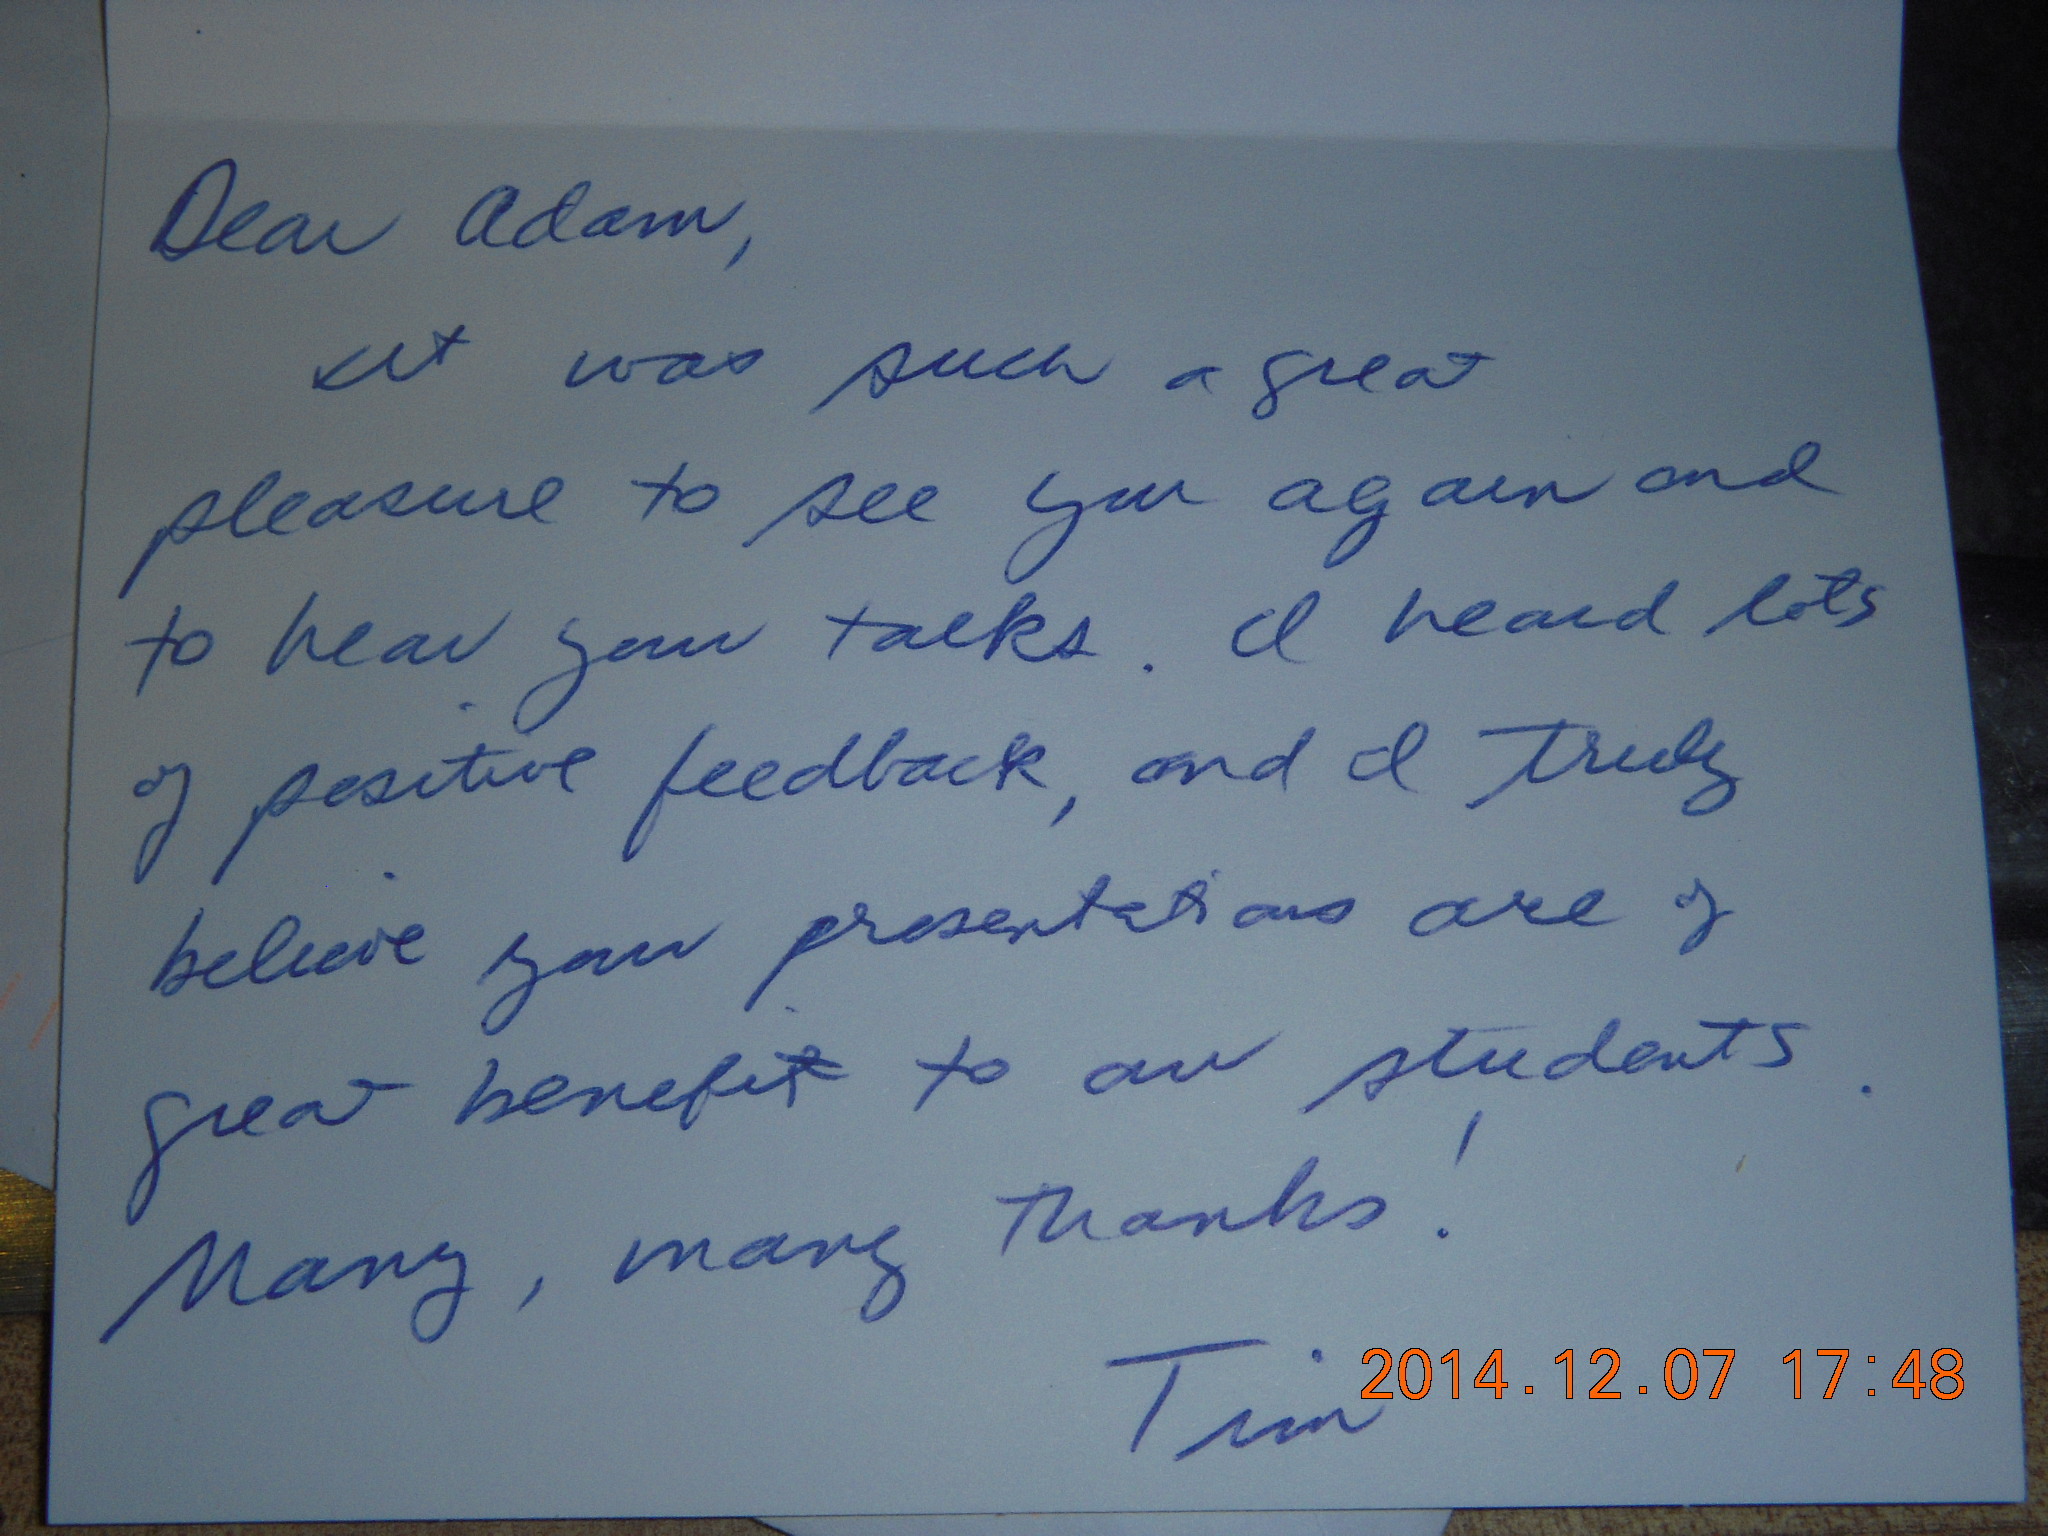 Dear Adam,
It was such a great
pleasure to see you again and
to hear your talks. I heard lots
of positive feedback, and I truly
believe your presentations are of
great benefit to our students.
Many, many thanks!
Tim
2014.12.07 17:48